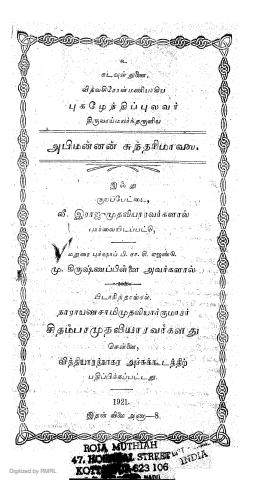 உ
கடவுள் துணை.
வித்வசிரோன்மணியாகிய
புகழேந்திப்புலவர்
திருவாய்மலர்ந்தருளிய
அபிமன்னன் சுந்தரிமாலை.
இஃது
வீ. இராஜமுதலியாரவர்களால்
பார்வையிடப்பட்டு,
மதுரை புக்ஷாப் பி. நா. சி. ஏஜண்டு
மு. கிருஷ்ணப்பிள்ளை அவர்களால்
பிடாரித்தாங்கல்,
நாராயணசாமிமுதலியார்குமாரர்
சிதம்பரமுதலியாரவர்களது
சென்னை,
வித்தியாரத்நாகர அச்சுக்கூடத்திற்
பதிப்பிக்கப்பட்டது.
1921.
இதன் விலை அணா-8.
ROJA MUTHIAH
47, HOSPITAL STREET
KOTTAIYUR 623 106
INDIA
Digitized by RMRL